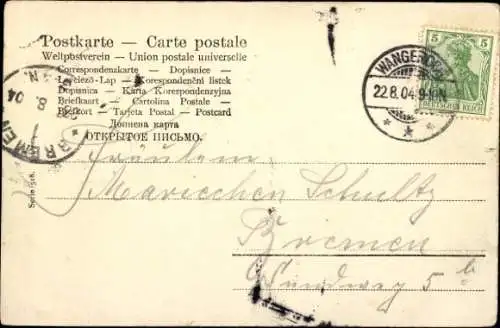 Postkarte — Carte postale
Weltpostverein — Union postale universelle
Correspondenzkarte — Dopisnice —
Levelező-Lap — Korespondenční listek
Dopisnica — Karta Korespondenzyjna
Briefkaart — Cartolina Postale —
Brefkort — Tarjeta Postal — Postcard
Дописна карта
ОТКРЫТОЕ ПИСЬМО.
5 5
DEUTSCHES REICH
WANGEROOG
22.8.04.9-10N.
BREMEN
8. 04
Serie 518.
Fräulein
Mariechen Schultz
Bremen
Wundweg 5 b